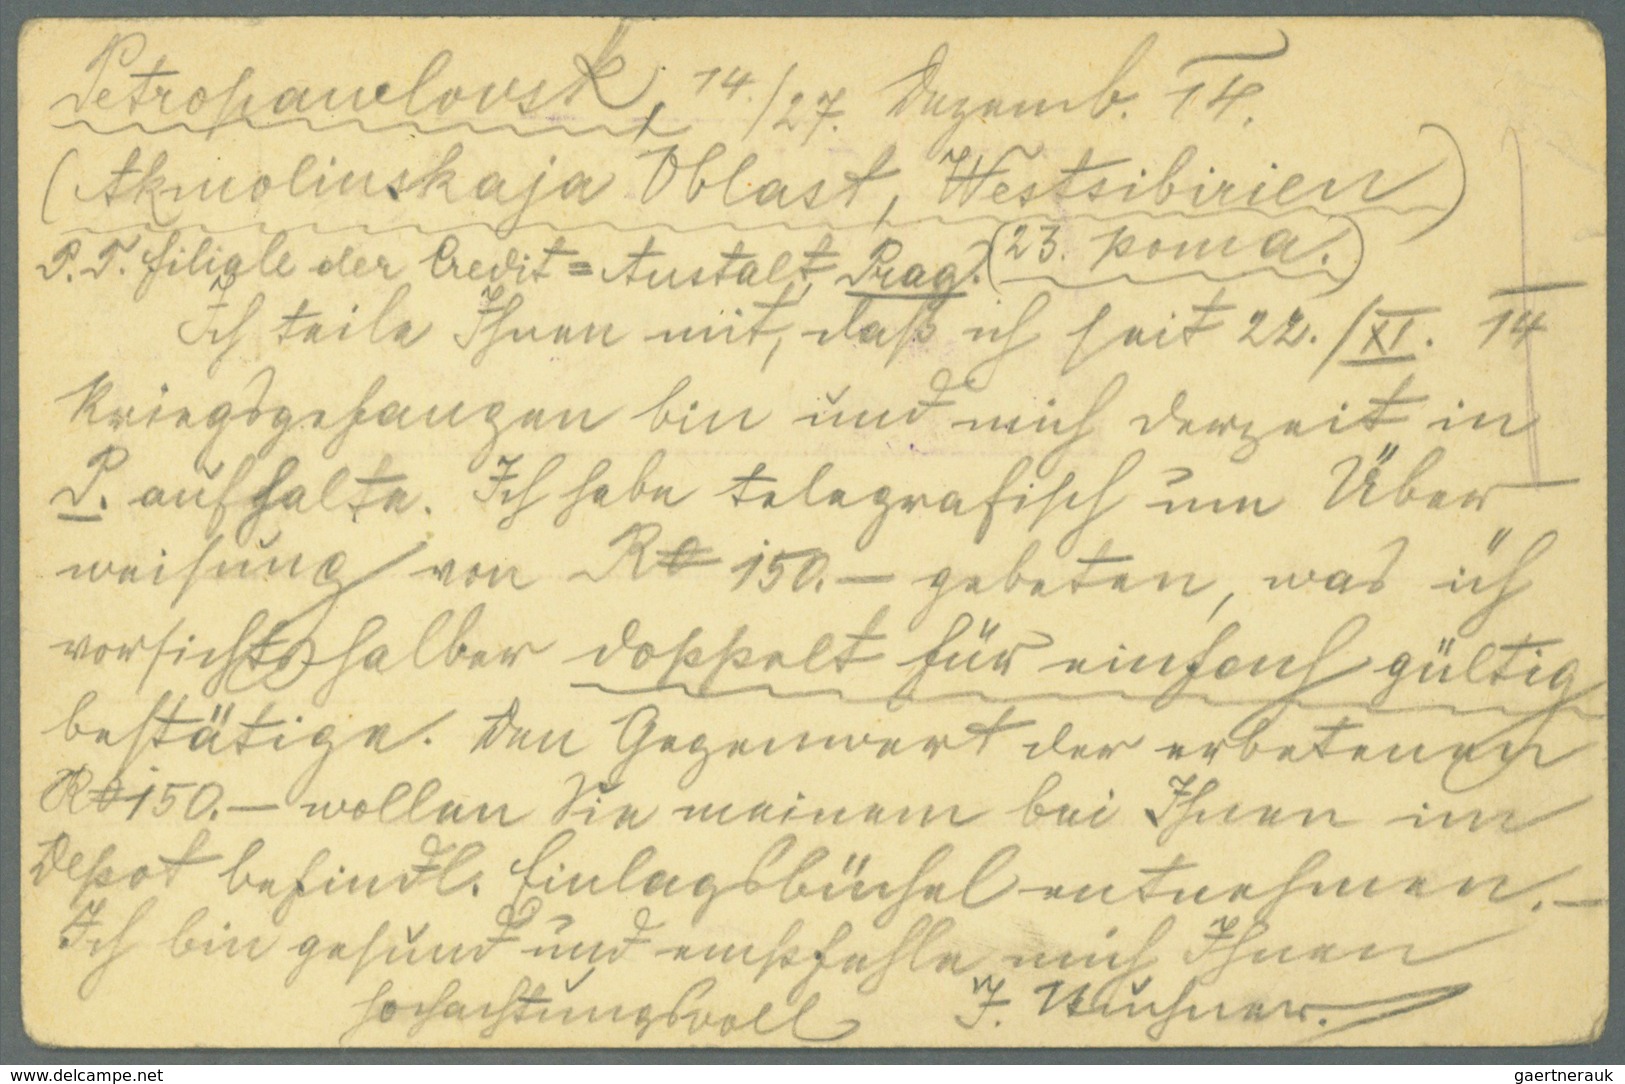 Petropawlovsk, 14./27. Dezemb. 14.
(Akmolinskaja Oblast, Westsibirien)
P. T. Filiale der Credit=Anstalt, Prag. (23. рота.)
Ich teile Ihnen mit, daß ich seit 22./XI. 14
kriegsgefangen bin und mich derzeit in
P. aufhalte. Ich habe telegrafisch um Über-
weisung von Ro 150.— gebeten, was ich
vorsichtshalber doppelt für einfach gültig
bestätige. Den Gegenwert der erbetenen
Ro 150.— wollen Sie meinem bei Ihnen im
Depot befindl. Einlagsbüchel entnehmen.—
Ich bin gesund und empfehle mich Ihnen
hochachtungsvoll J.
www.delcampe.net gaertnerauk